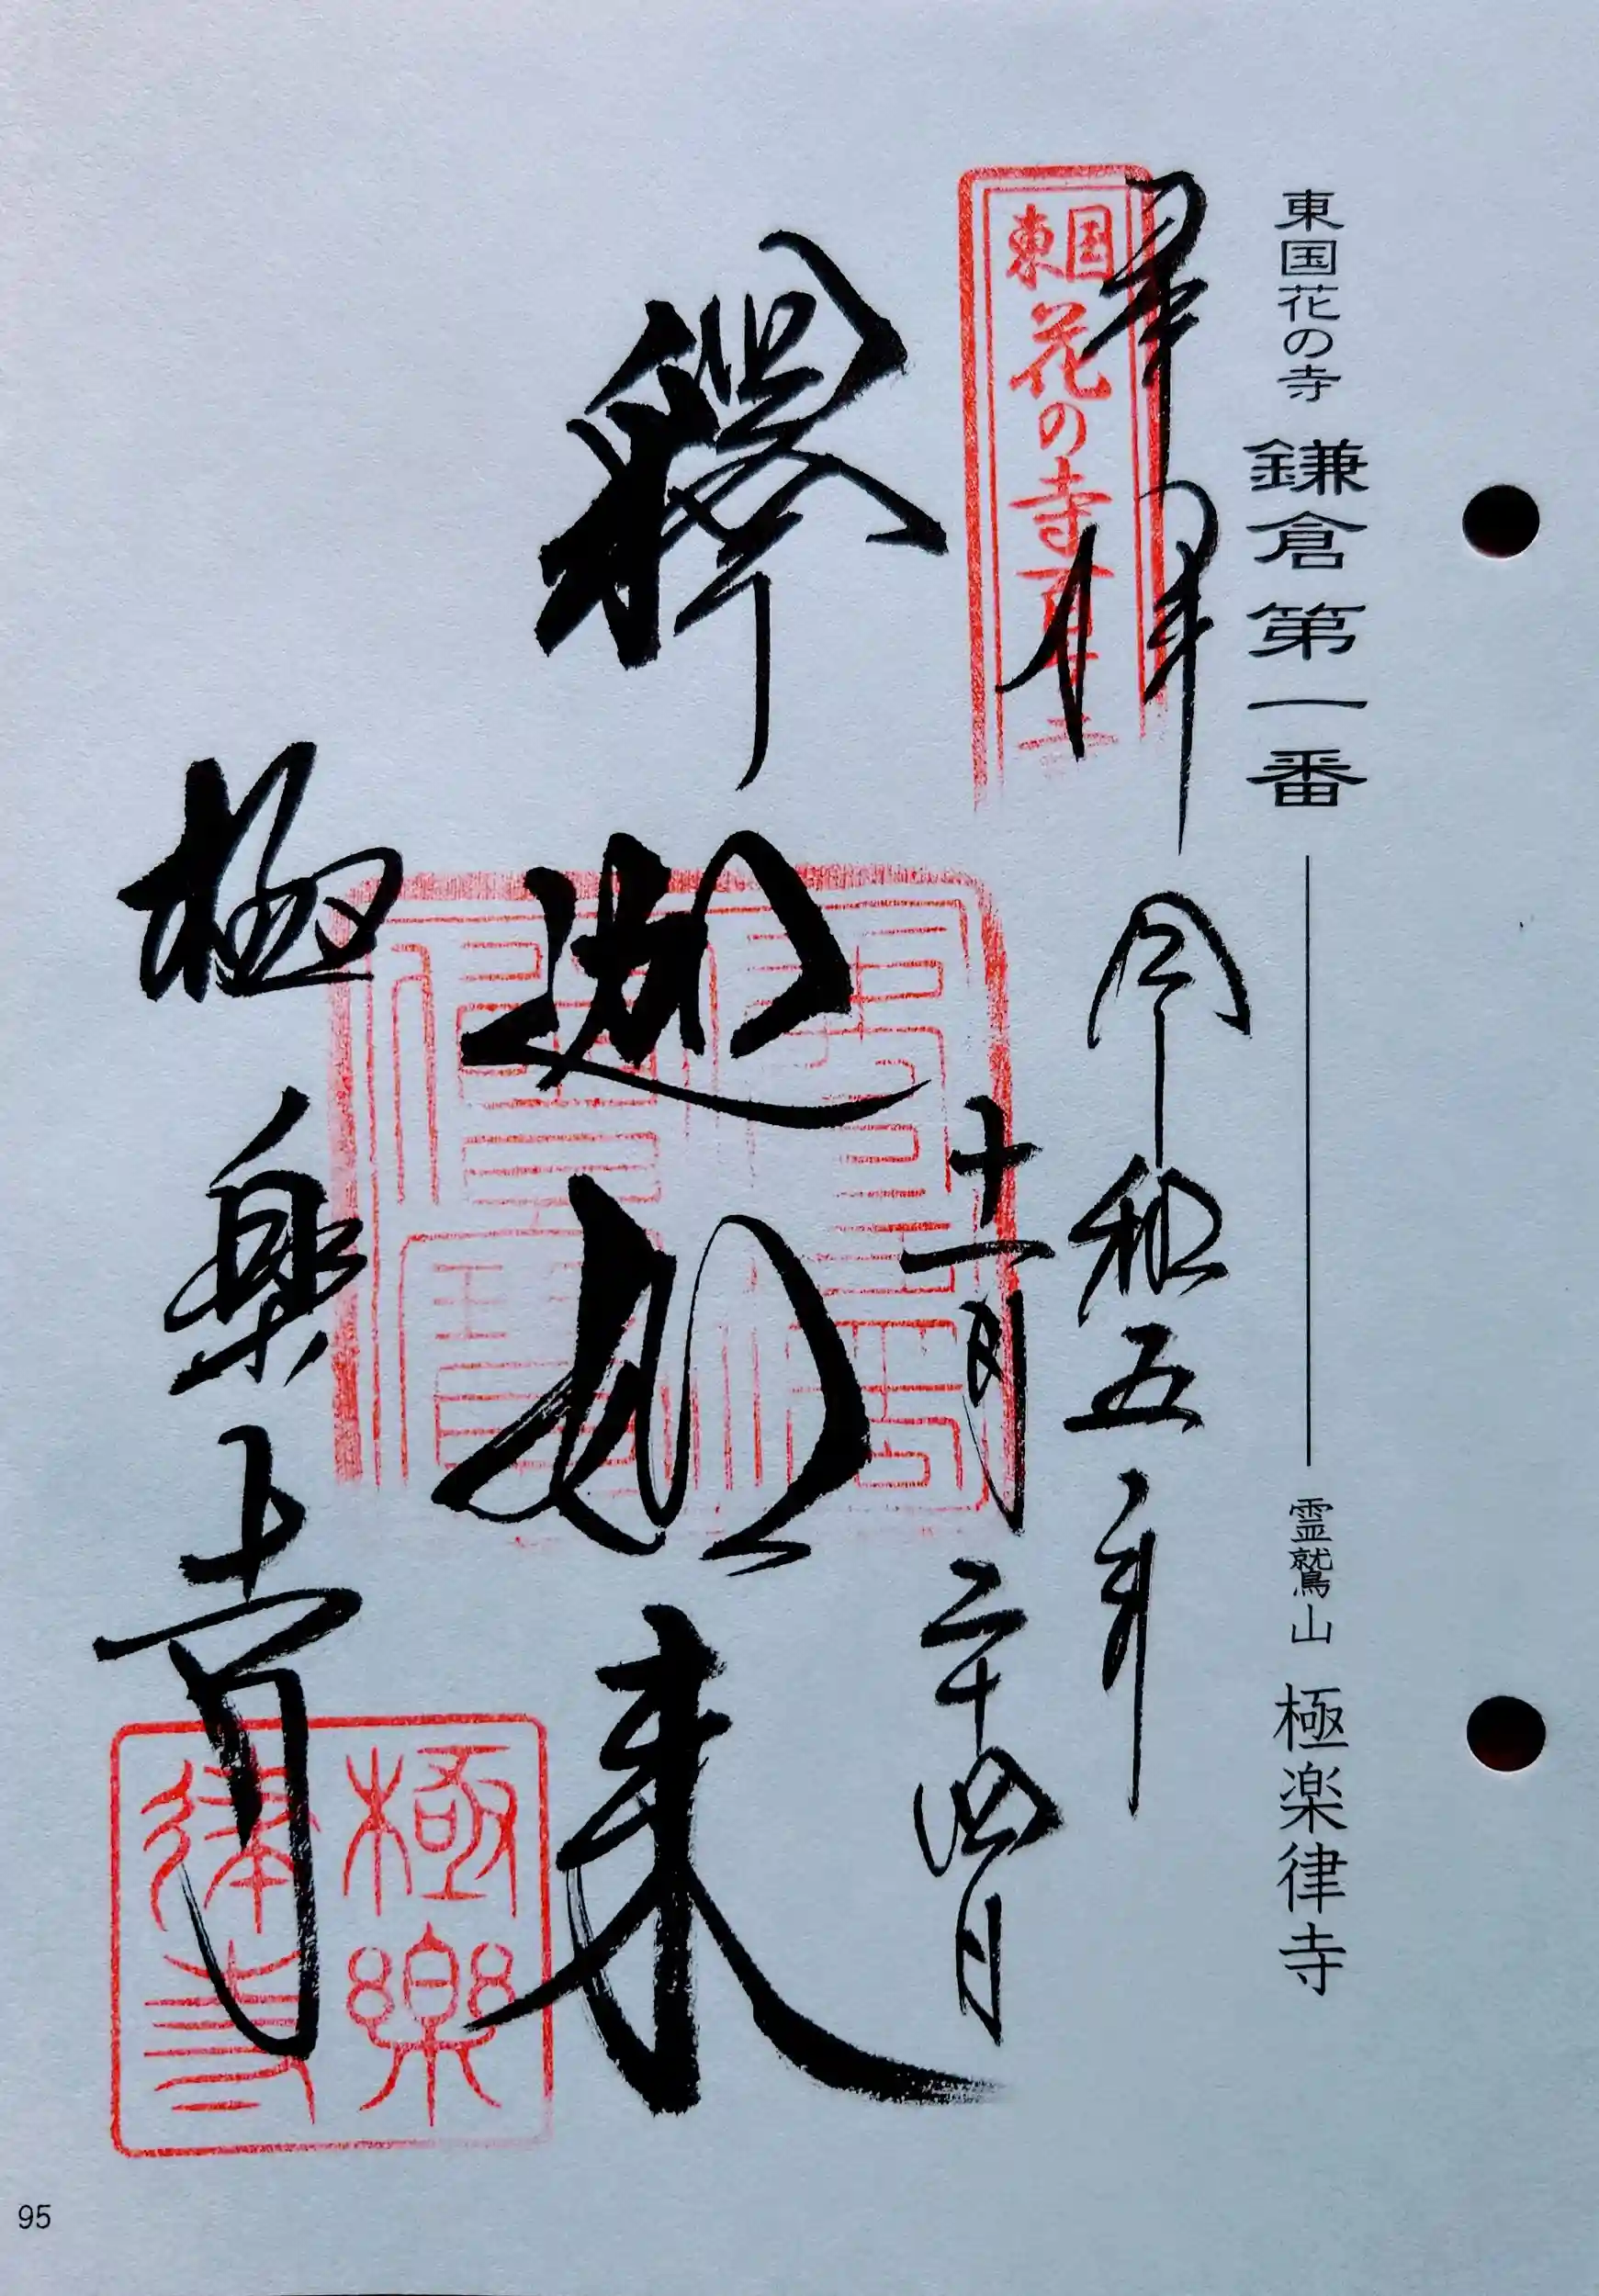 東国花の寺 鎌倉第一番 霊鷲山 極楽律寺
奉拝
令和五年
十一月二十四日
東国花の寺百
釋迦如来
極楽寺
極樂律寺
95